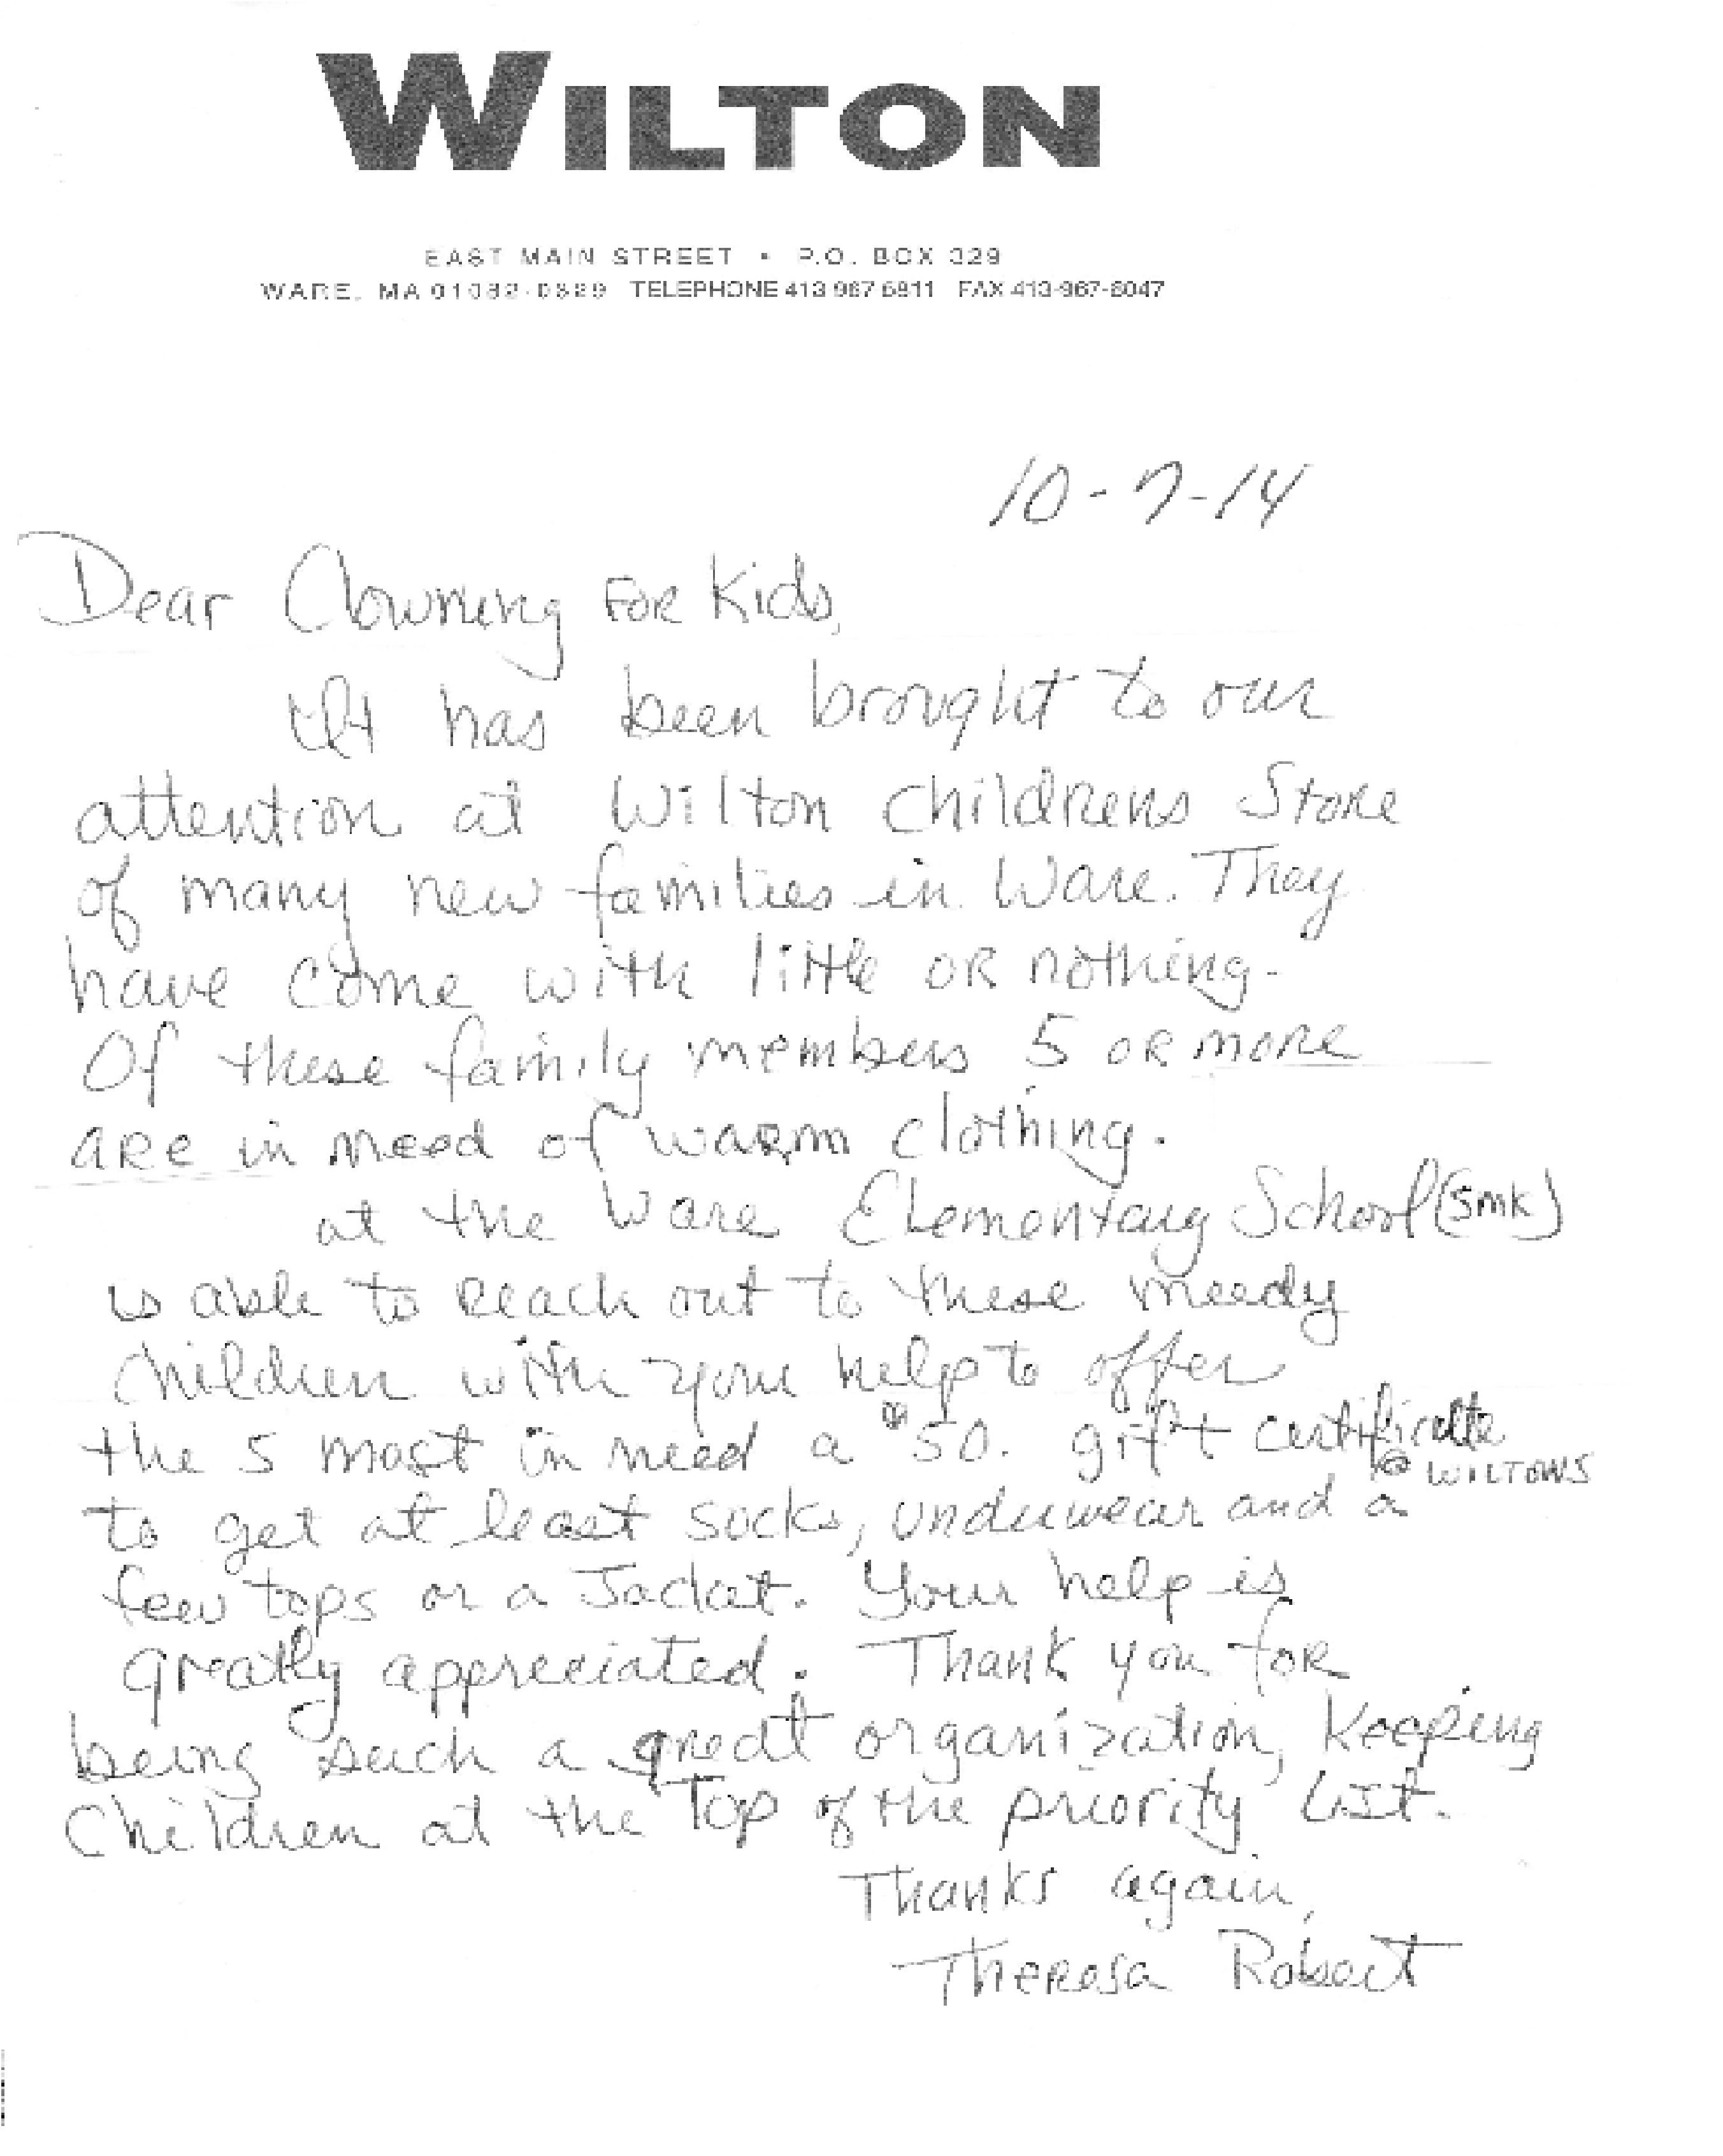 WILTON
EAST MAIN STREET • P.O. BOX 329
WARE, MA TELEPHONE 413 967 5811 FAX 413-967-8047
10-7-14
Dear Clowning FOR Kids,
It has been brought to our
attention at Wilton Childrens Store
of many new families in Ware. They
have come with little OR nothing.
Of these family members 5 OR more
are in need of warm clothing.
at the Ware Elementary School (SMK)
is able to reach out to these needy
children with your help to offer
the 5 most in need a $50. gift certificate
@ WILTONS
to get at least socks, underwear and a
few tops or a Jacket. Your help is
greatly appreciated. Thank you for
being such a great organization, Keeping
Children at the Top of the priority List.
Thanks again,
Theresa Robert